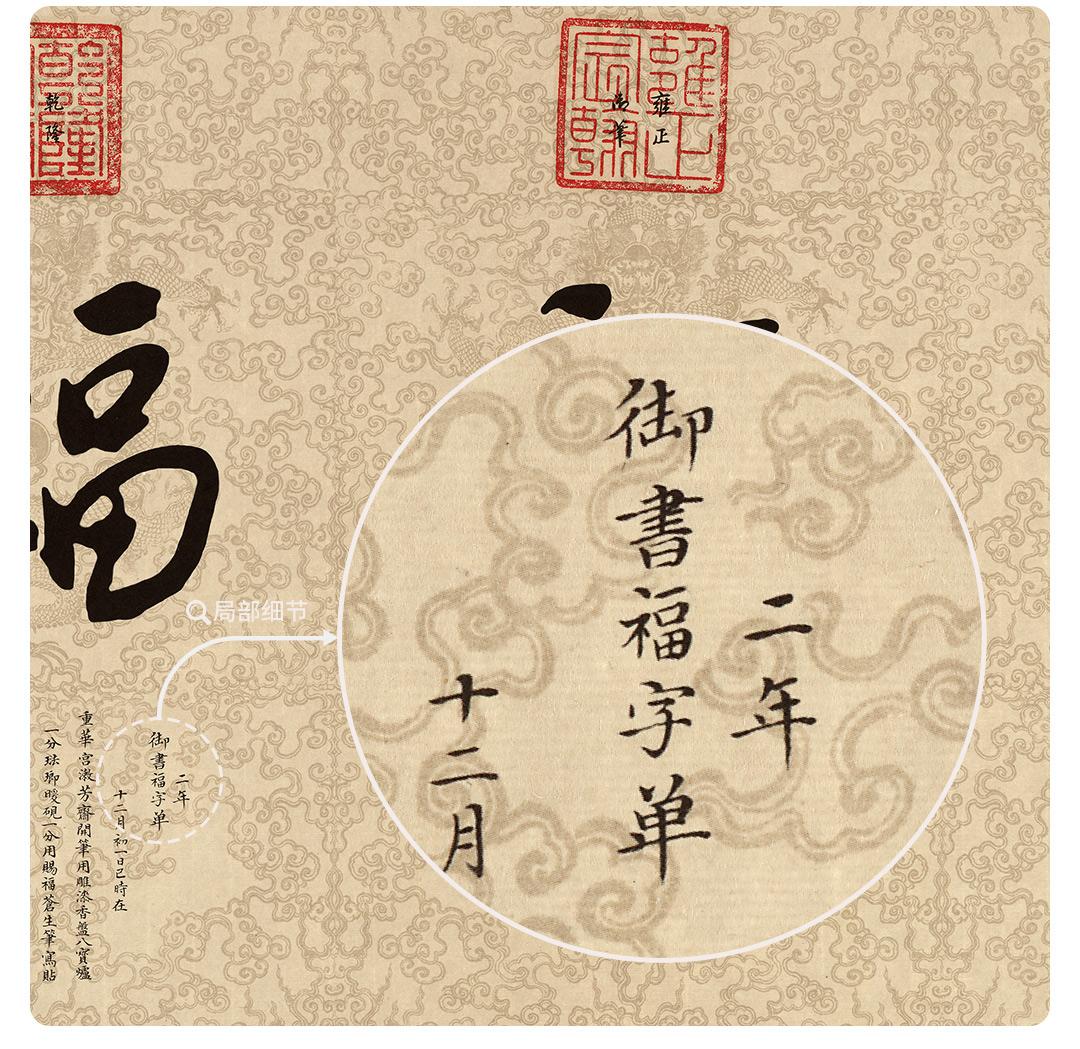 雍正
御筆
雍正
宸翰
乾隆
福
二年
御書福字单
十二月
局部细节
二年
御書福字单
十二月初一日巳時在
重華宮漱芳齋開筆用雕漆香盤八寶爐
一分琺瑯暖硯一分用賜福蒼生筆寫貼